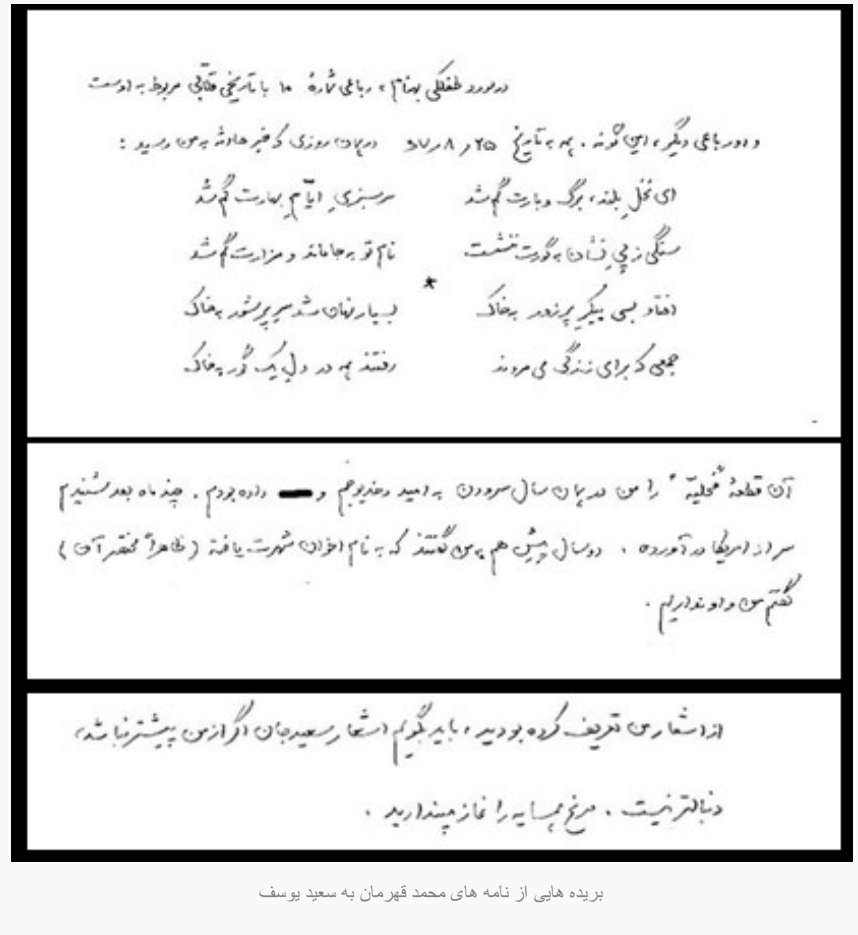 در مورد طفلکی بهنام، رباعی شمارهٔ ۱۰ با تاریخی قلّابی مربوط به اوست
و دو رباعی دیگر، این گونه. همه به تاریخ ۲۵ ر ۸ ر ۶۷ در همان روزی که خبر حادثه به من رسید:
ای نخلِ بلند، برگ و بارت گم شد سرسبزیِ ایّامِ بهارت گم شد
سنگی ز پیِ نشان به گورت ننشست نام تو به جا ماند و مزارت گم شد
*
افتاد بسی پیکرِ پر زور به خاک بسیار نهان شد سرِ پر شور به خاک
جمعی که برای زندگی می مردند رفتند همه در دلِ یک گور به خاک
آن قطعهٔ "مُخلیّه" را من در همان سال سرودن به امید و خدیوجم و داده بودم. چند ماه بعد شنیدم
سر از امریکا درآورده. دو سال پیش هم به من گفتند که به نام اخوان شهرت یافته (ظاهراً مختصر آن)
گفتم من و او نداریم.
از اشعار من تعریف کرده بودید، باید بگویم اشعار سعید جان اگر از من پیشتر نباشد،
دنبالتر نیست. مرغ همسایه را غاز مپندارید.
بریده هایی از نامه های محمد قهرمان به سعید یوسف